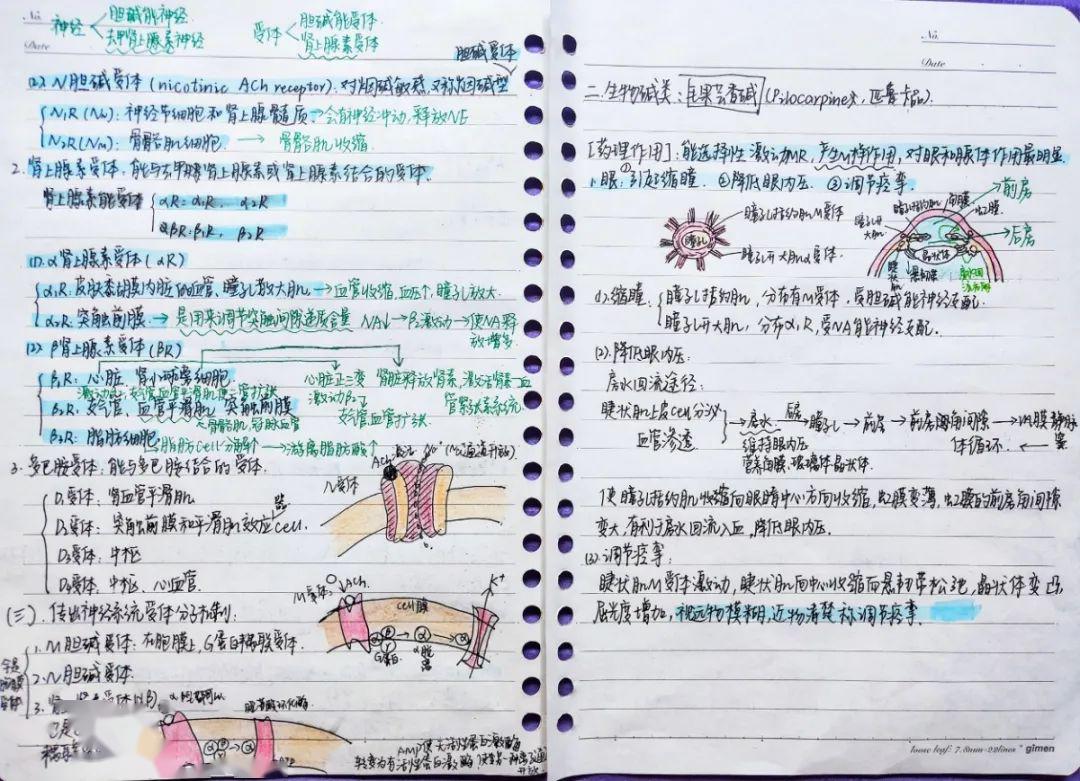 No.
Date
神经 胆碱能神经 去甲肾上腺素神经
受体 胆碱能受体 肾上腺素受体
胆碱受体
(2). N胆碱受体 (nicotinic ACh receptor): 对烟碱敏感, 又称烟碱型
N₁R (Nɴ): 神经节细胞和肾上腺髓质 → 会有神经冲动, 释放NE
N₂R (Nᴍ): 骨骼肌细胞. → 骨骼肌收缩
2. 肾上腺素受体: 能与去甲肾上腺素或肾上腺素结合的受体.
肾上腺素能受体
αR: α₁R、α₂R
βR: β₁R, β₂R
(1). α肾上腺素受体 (αR)
α₁R: 皮肤黏膜内脏的血管、瞳孔散大肌 → 血管收缩, 血压↑, 瞳孔放大.
α₂R: 突触前膜 → 是用来调节突触间隙递质含量
(2). β肾上腺素受体 (βR)
β₁R: 心脏、肾小球旁细胞.
心脏正三变
肾脏释放肾素
β₂R: 支气管、血管平滑肌 突触前膜
激动β₂
支气管血管扩张
β₃R: 脂肪细胞
脂肪cell分解↑ → 游离脂肪酸↑
3. 多巴胺受体: 能与多巴胺结合的受体.
D₁受体: 肾血管平滑肌
D₂受体: 突触前膜和平滑肌效应器cell.
D₃受体: 中枢
中枢、心血管.
N受体
ACh
M受体
ACh.
cell膜
K⁺
G蛋白
(三). 传出神经系统受体分子机制:
1. M胆碱受体: 在胞膜上, G蛋白耦联受体.
2. N胆碱受体.
3. 肾
No.
Date
二. 生物碱类: 毛果芸香碱 (Pilocarpine, 匹鲁卡品).
[药理作用]: 能选择性激动MR, 产生M样作用, 对眼和腺体作用最明显.
1. 眼: ①引起缩瞳. ②降低眼内压. ③调节痉挛.
瞳孔
瞳孔括约肌M受体
瞳孔开大肌α受体.
瞳孔开大肌
瞳孔括约肌
角膜
虹膜
前房
后房
晶状体
睫状肌
悬韧带
(1). 缩瞳:
瞳孔括约肌, 分布有M受体, 受胆碱能神经支配.
瞳孔开大肌, 分布α₁R, 受NA能神经支配.
(2). 降低眼内压:
房水回流途径:
睫状肌上皮cell分泌
血管渗透
→ 房水 → 瞳孔 → 前房 → 前房角间隙 → 巩膜静脉窦
体循环. ←
维持眼内压
营养角膜、玻璃体晶状体.
使瞳孔括约肌收缩向眼睛中心方向收缩, 虹膜变薄, 虹膜的前房角间隙
变大, 有利于房水回流入血, 降低眼内压.
(3). 调节痉挛:
睫状肌M受体激动, 睫状肌向中心收缩而悬韧带松弛, 晶状体变凸,
屈光度增加, 视远物模糊, 近物清楚称调节痉挛
loose leaf: 7.8mm-22lines * gimen